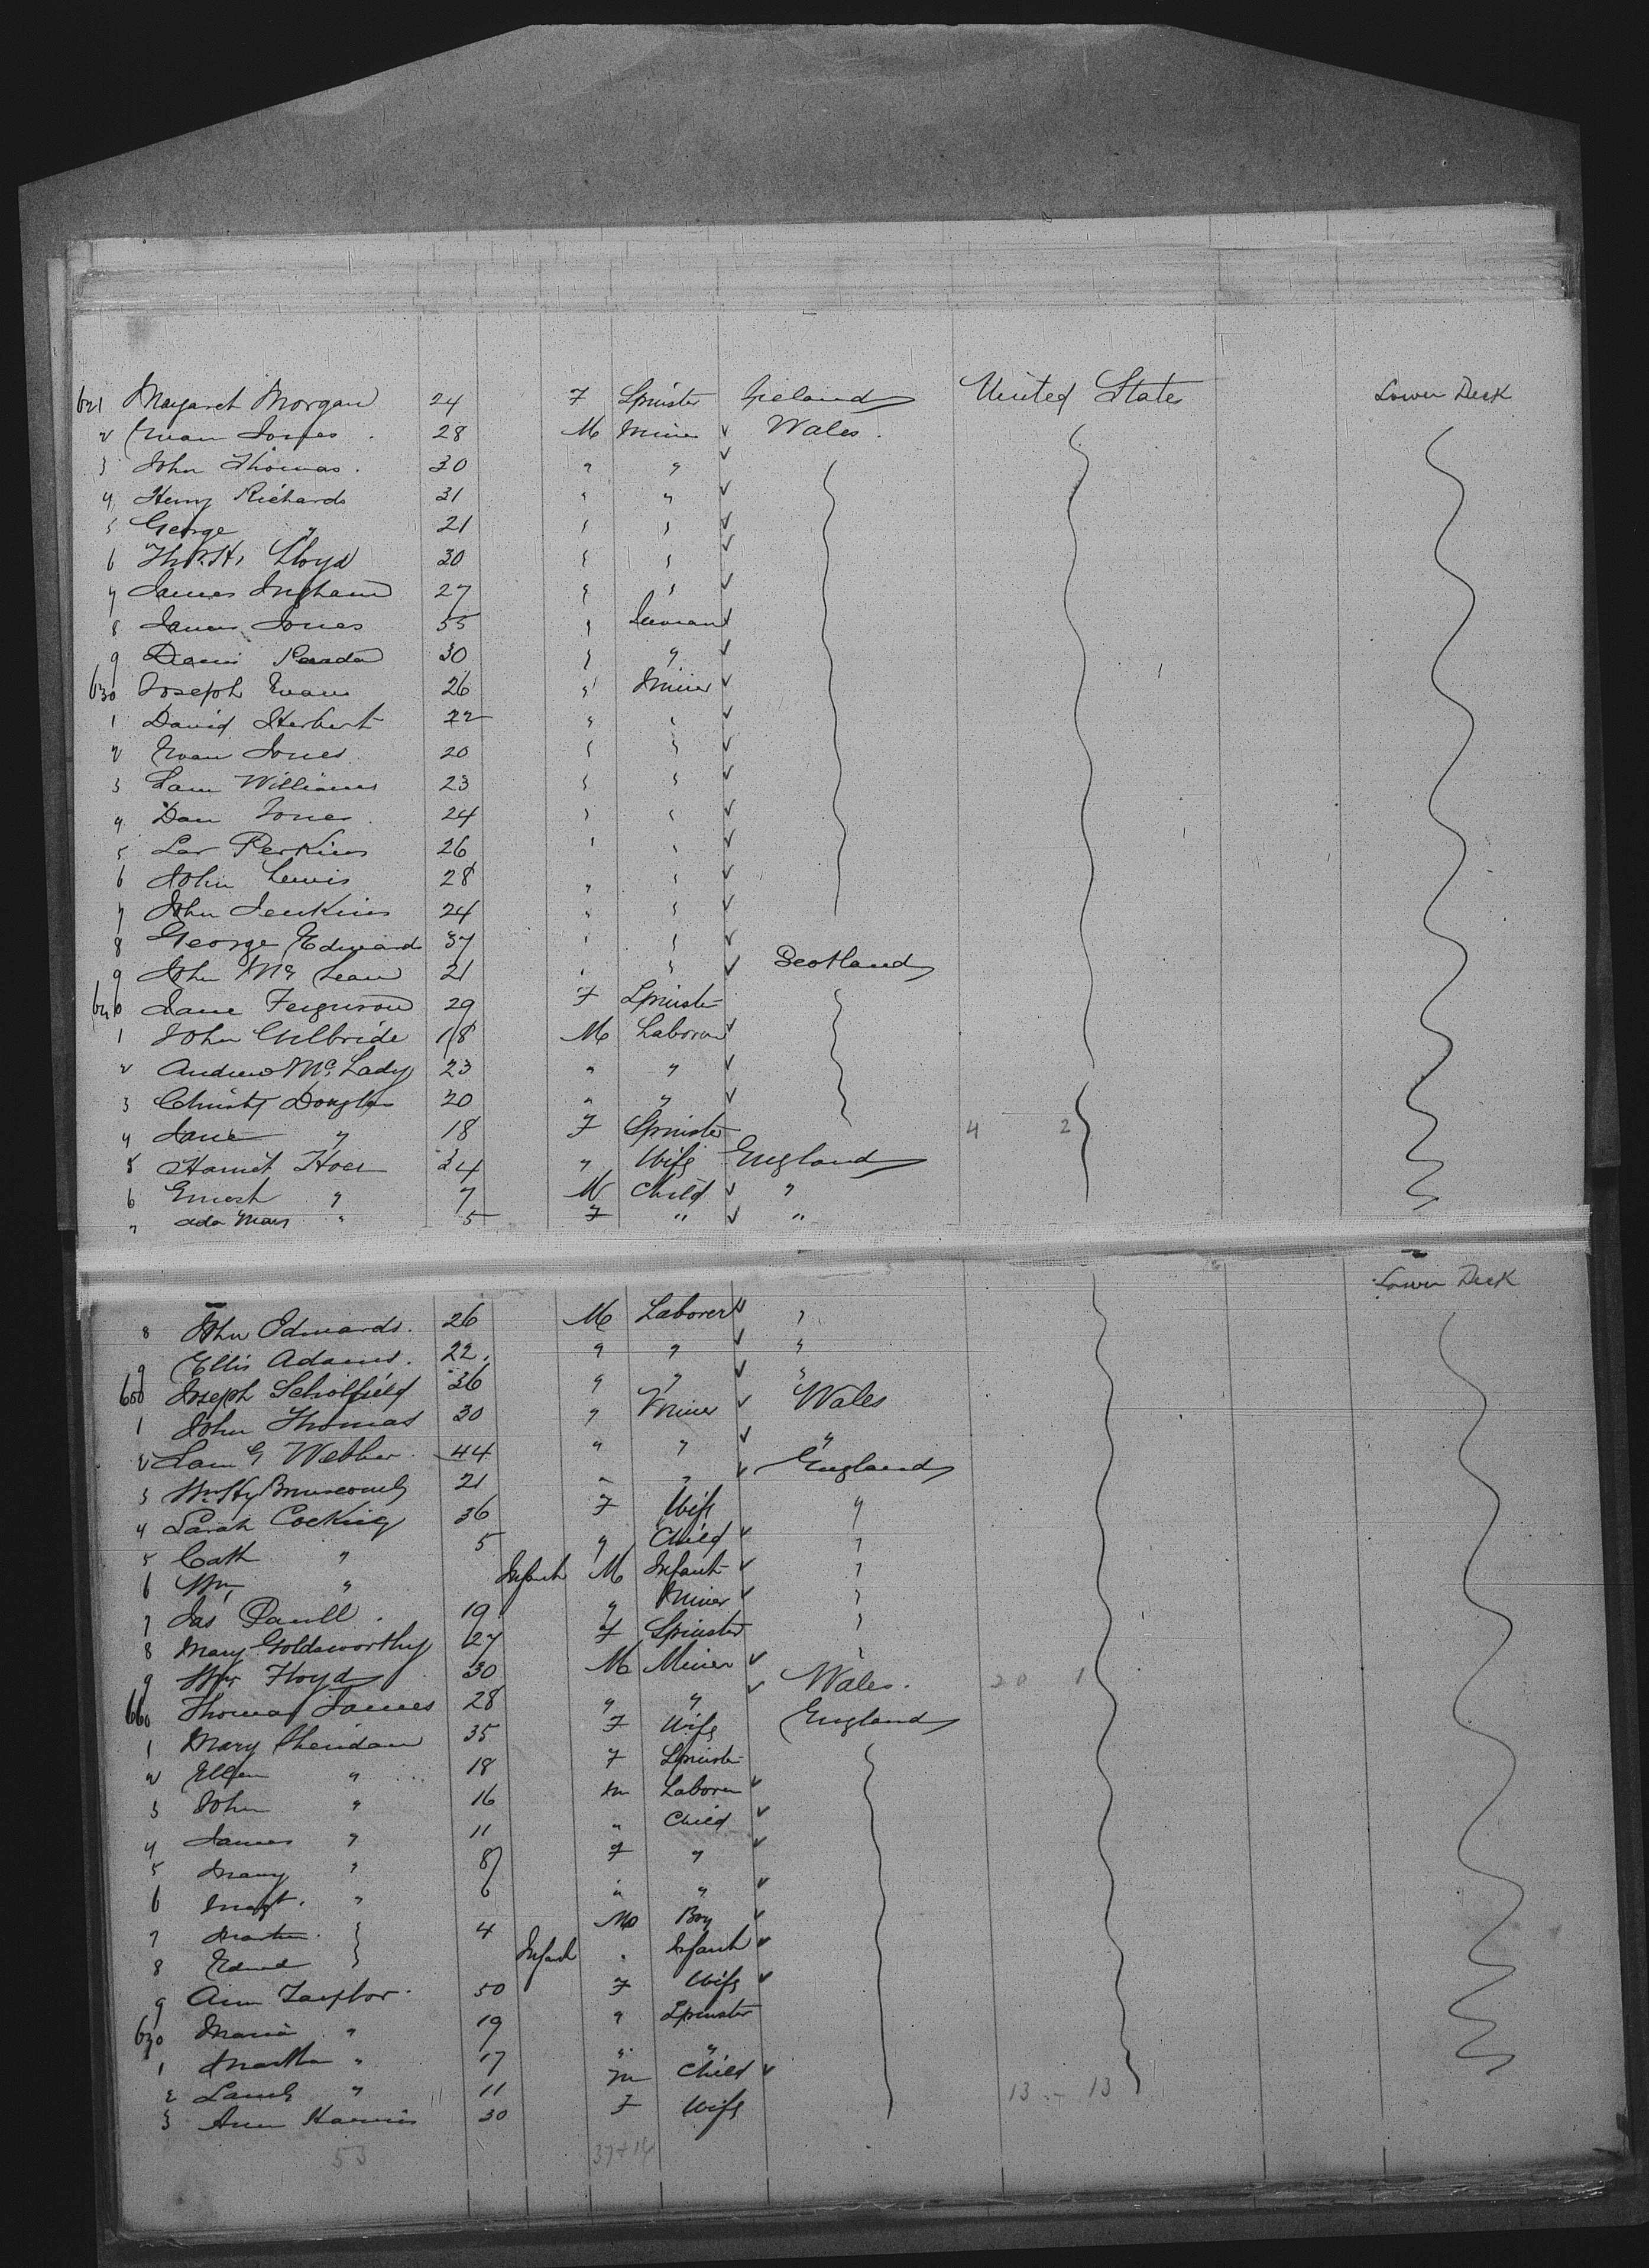 621 Margaret Morgan 24 F Spinster Ireland United States Lower Deck
2 Evan Jones 28 M Miner ✓ Wales
3 John Thomas 30 " " ✓
4 Henry Richards 31 " " ✓
5 George " 21 " " ✓
6 Thos. H. Lloyd 30 " " ✓
7 James Ingham 27 " " ✓
8 James Jones 55 " ✓
9 30 " " ✓
630 Joseph Evans 26 " Miner ✓
1 David Herbert 22 " " ✓
2 Evan Jones 20 " " ✓
3 Sam Williams 23 " " ✓
4 Dan Jones 24 " " ✓
5 Perkins 26 " " ✓
6 John Lewis 28 " " ✓
7 John Jenkins 24 " " ✓
8 George Edward 37 " " ✓
9 John Mc Lean 21 " " ✓ Scotland
640 Jane Ferguson 29 F Spinster
1 John Gilbride 18 M Laborer ✓
2 Andrew Mc Lady 23 " " ✓
3 Christy Douglas 20 " " ✓
4 Jane " 18 F Spinster 4 2
5 Harriet 34 " Wife England
6 Ernest " 7 M Child ✓ "
7 Ada Mary " 5 F " ✓ "
Lower Deck
8 John Edwards. 26 M Laborer ✓ "
9 Ellis Adams. 22 " " ✓ "
650 Joseph Scholfield 36 " " ✓ "
1 John Thomas 30 " Miner ✓ Wales
2 Sam G Webber 44 " " ✓ "
3 Wm Hy 21 " " ✓ England
4 Sarah Cocking 36 F Wife "
5 Cath " 5 " Child ✓ "
6 Wm " Infant M Infant ✓ "
7 Jas Paull 19 " Miner ✓ "
8 Mary Goldsworthy 27 F Spinster "
9 Wm Floyd 30 M Miner ✓ "
660 Thomas James 28 " " ✓ Wales. 20 1
1 Mary Sheridan 35 F Wife England
2 Ellen " 18 F Spinster
3 John " 16 m Laborer ✓
4 James " 11 " Child ✓
5 Mary " 8 F " ✓
6 Margt. " 6 " " ✓
7 Martin " 4 M Boy ✓
8 Edwd " Infant " Infant ✓
9 Ann Taylor 50 F Wife ✓
670 Maria " 19 " Spinster
1 Martha " 17 " "
2 Saml " 11 m Child ✓ 13 - 13
3 Ann Harris 30 F Wife
53 37+14